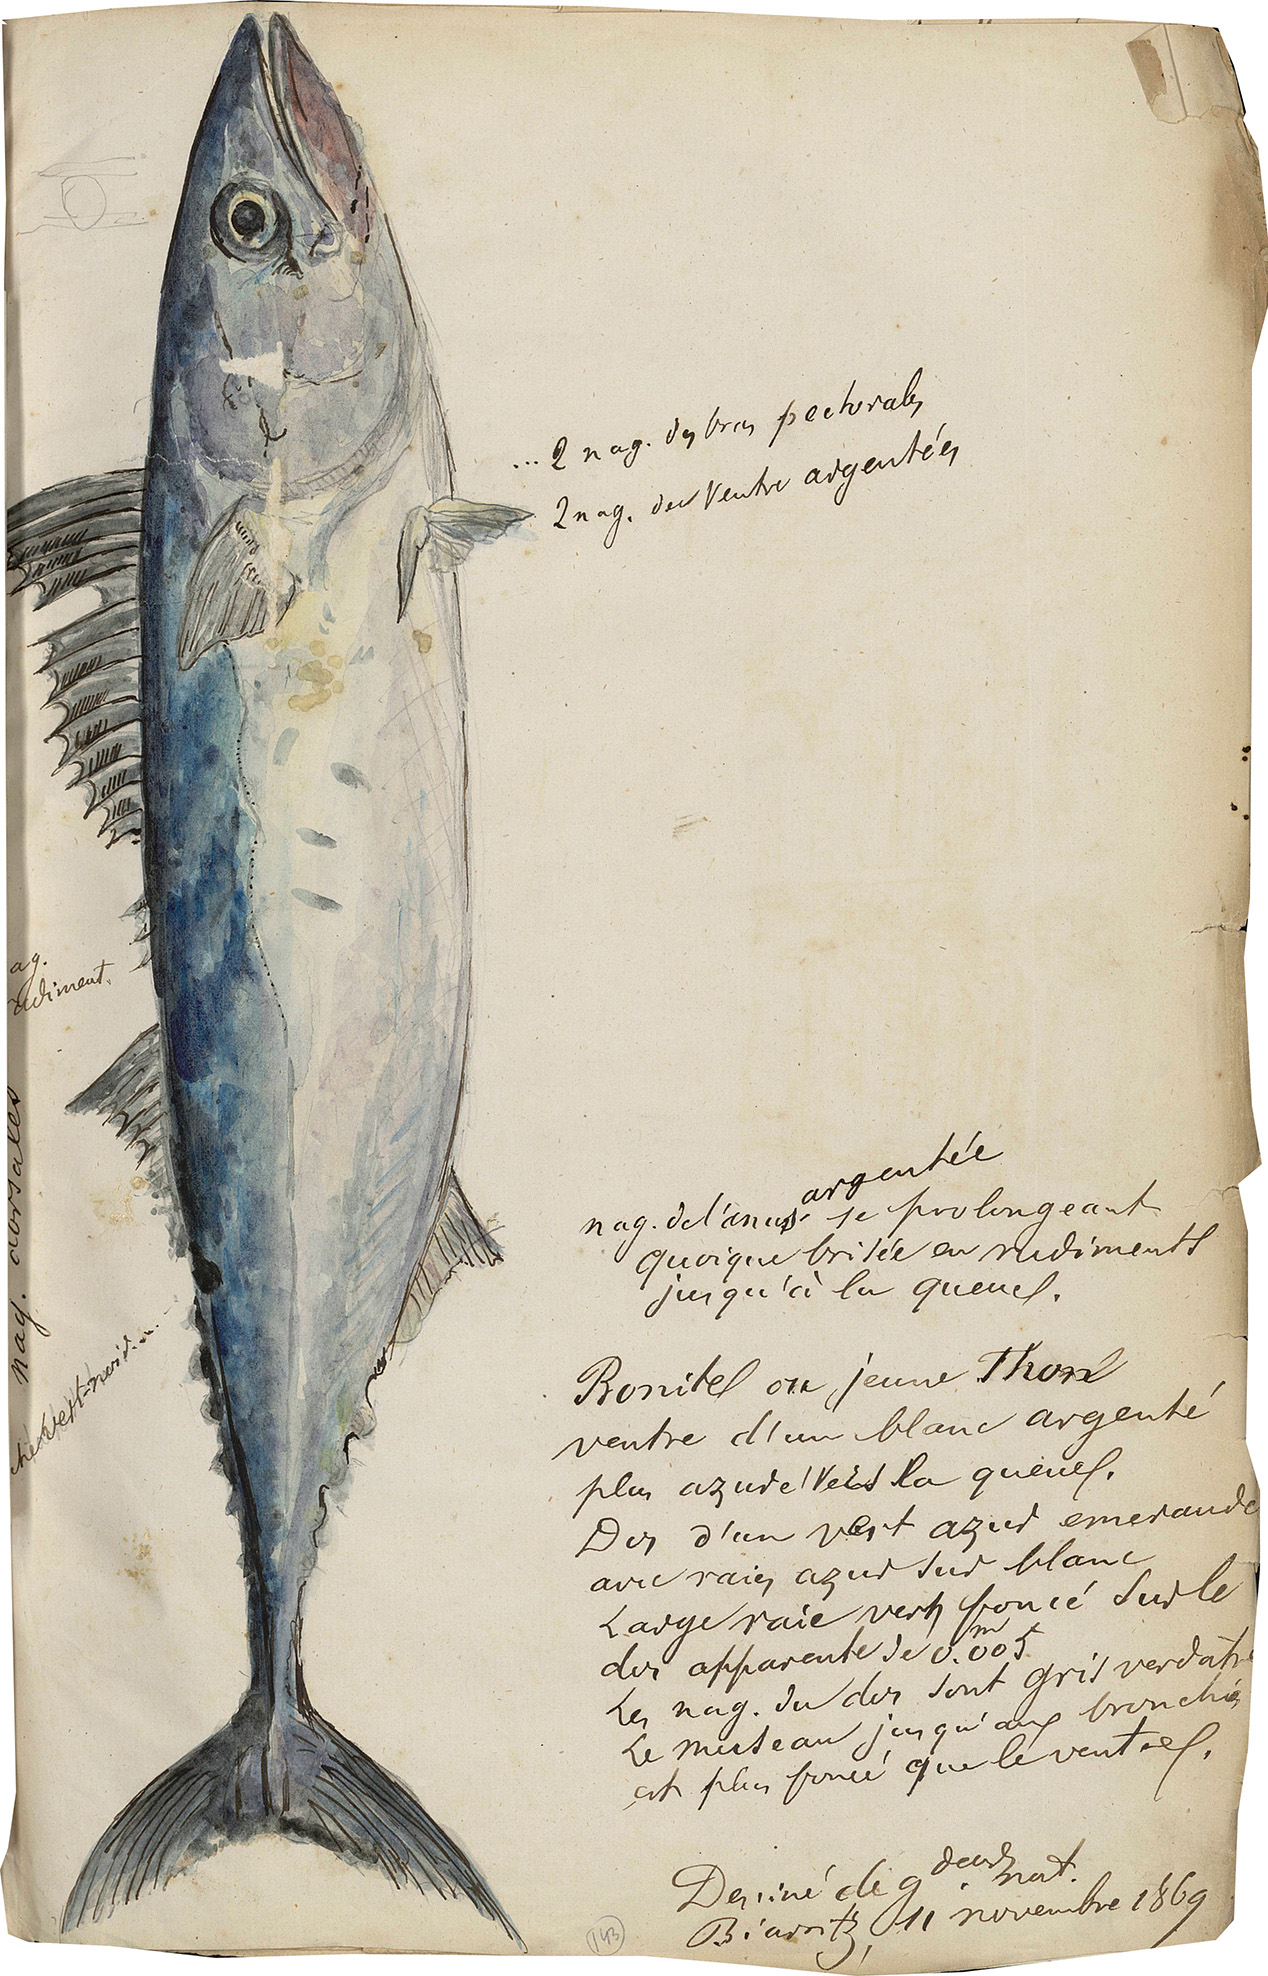 ... 2 nag. des bras pectorales
2 nag. du Ventre argentées
ag.
rudiment.
nag. dorsales
argentée
nag. de l'anus se prolongeant
quoique brisée en rudiments
jusqu'à la queue.
Bonite ou jeune Thon
ventre d'un blanc argenté
plus azuré vers la queue.
Dos d'un vert azur emeraude
avec raies azur sur blanc
Large raie vert foncé sur le
dos apparente de 0.m005
Les nag. du dos sont gris verdâtre
Le museau jusqu'aux bronchies
est plus foncé que le ventre.
Dessiné de gdeur nat.
Biarritz, 11 novembre 1869
143